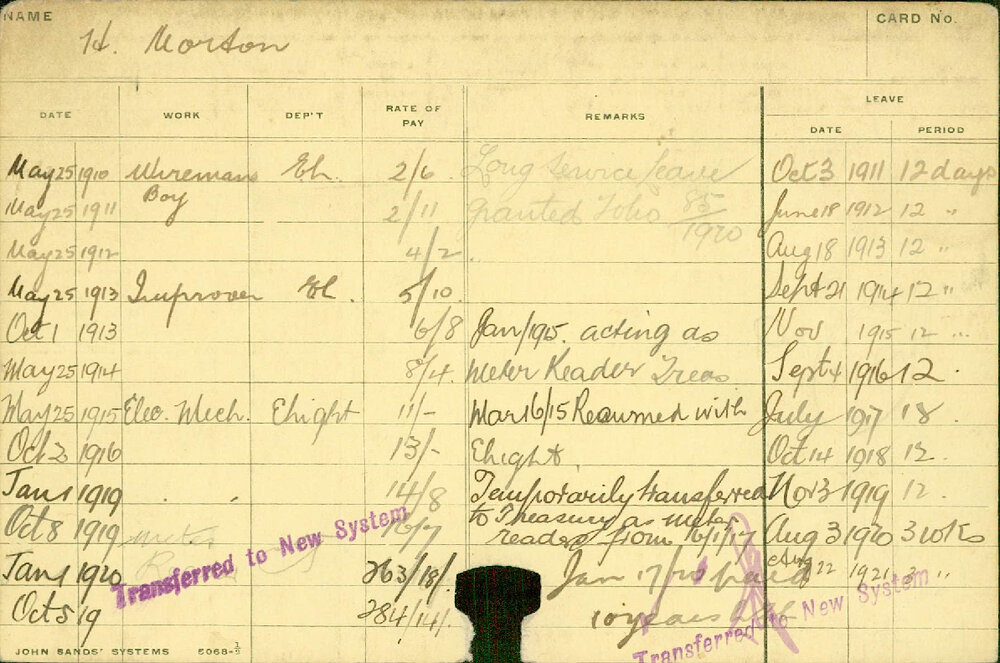 NAME
CARD No.
H. Morton
DATE WORK DEP'T RATE OF PAY REMARKS LEAVE
DATE PERIOD
May 25 1910 Wiremans El. 2/6 Long service leave Oct 3 1911 12 days
May 25 1911 Boy 2/11 granted 85/1920 June 18 1912 12 "
May 25 1912 4/2. Aug 18 1913 12 "
May 25 1913 Improver El. 5/10. Sept 21 1914 12 "
Oct 1 1913 6/8 acting as Nov 1915 12 "
May 25 1914 8/4. Meter Reader Treas. Sept 4 1916 12.
May 25 1915 Elec. Mech. Elight 11/- Mar 16/15 Resumed with July 1917 18.
Oct 2 1916 13/- Elight. Oct 14 1918 12.
Jan 1 1919 14/8 Temporarily transferred Nov 3 1919 12.
Oct 8 1919 to Treasury as meter reader from 16/1/17 Aug 3 1920 3 wks
Jan 1 1920 263/18/. Jan 17 Aug 22 1921 3 "
Oct 5 19 284/14/. 10 years
Transferred to New System
Transferred to New System
JOHN SANDS' SYSTEMS 5068-½